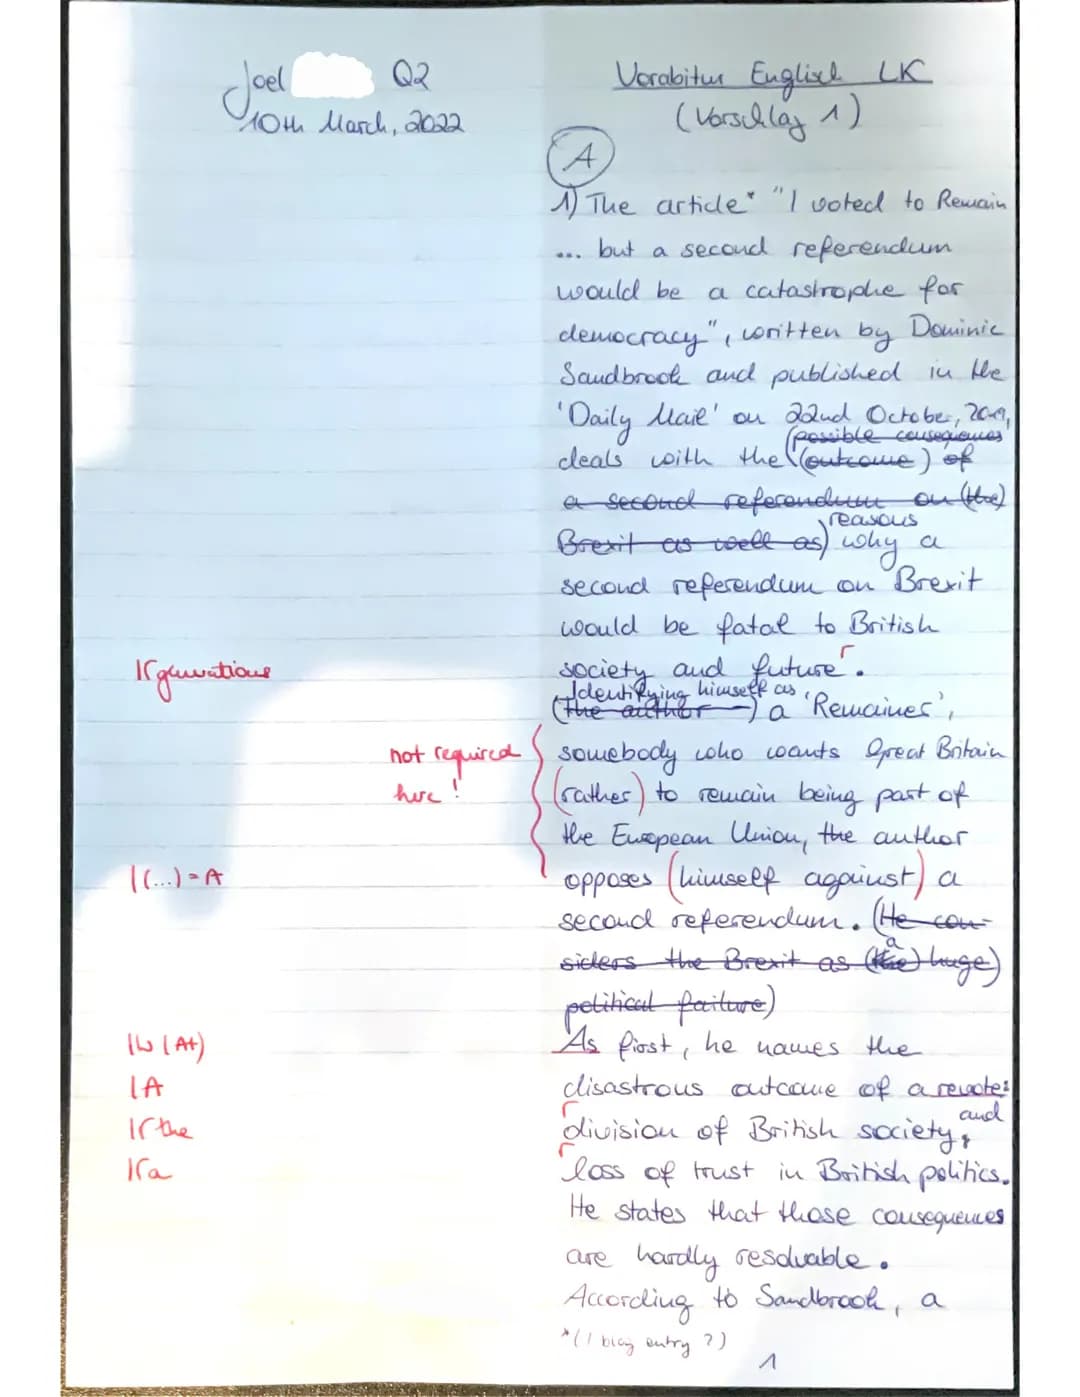 Joel Q2
10th March, 2022
Vorabitur Englisch LK
(Vorschlag 1)
A
1) The article* "I voted to Remain
... but a second referendum
would be a catastrophe for
democracy", written by Dominic
Sandbrook and published in the
'Daily Mail' on 22nd October, 2019,
(possible consequences
deals with the (outcome) of
a second referendum on (the)
reasons
Brexit as well as) why a
second referendum on Brexit
would be fatal to British
society and future.
Γgenerations
Identifying himself as
(the author) a 'Remainer',
not required
here!
somebody who wants Great Britain
(rather) to remain being part of
the European Union, the author
|(...) = A
opposes (himself against) a
second referendum. (He con-
a
siders the Brexit as (the) huge)
political failure)
|W (At)
As first, he names the
|A
disastrous outcome of a revote:
|Γ the
and
division of British society,
|Γ a
loss of trust in British politics.
He states that those consequences
are hardly resolvable.
According to Sandbrook, a
*(/ blog entry ?)
1